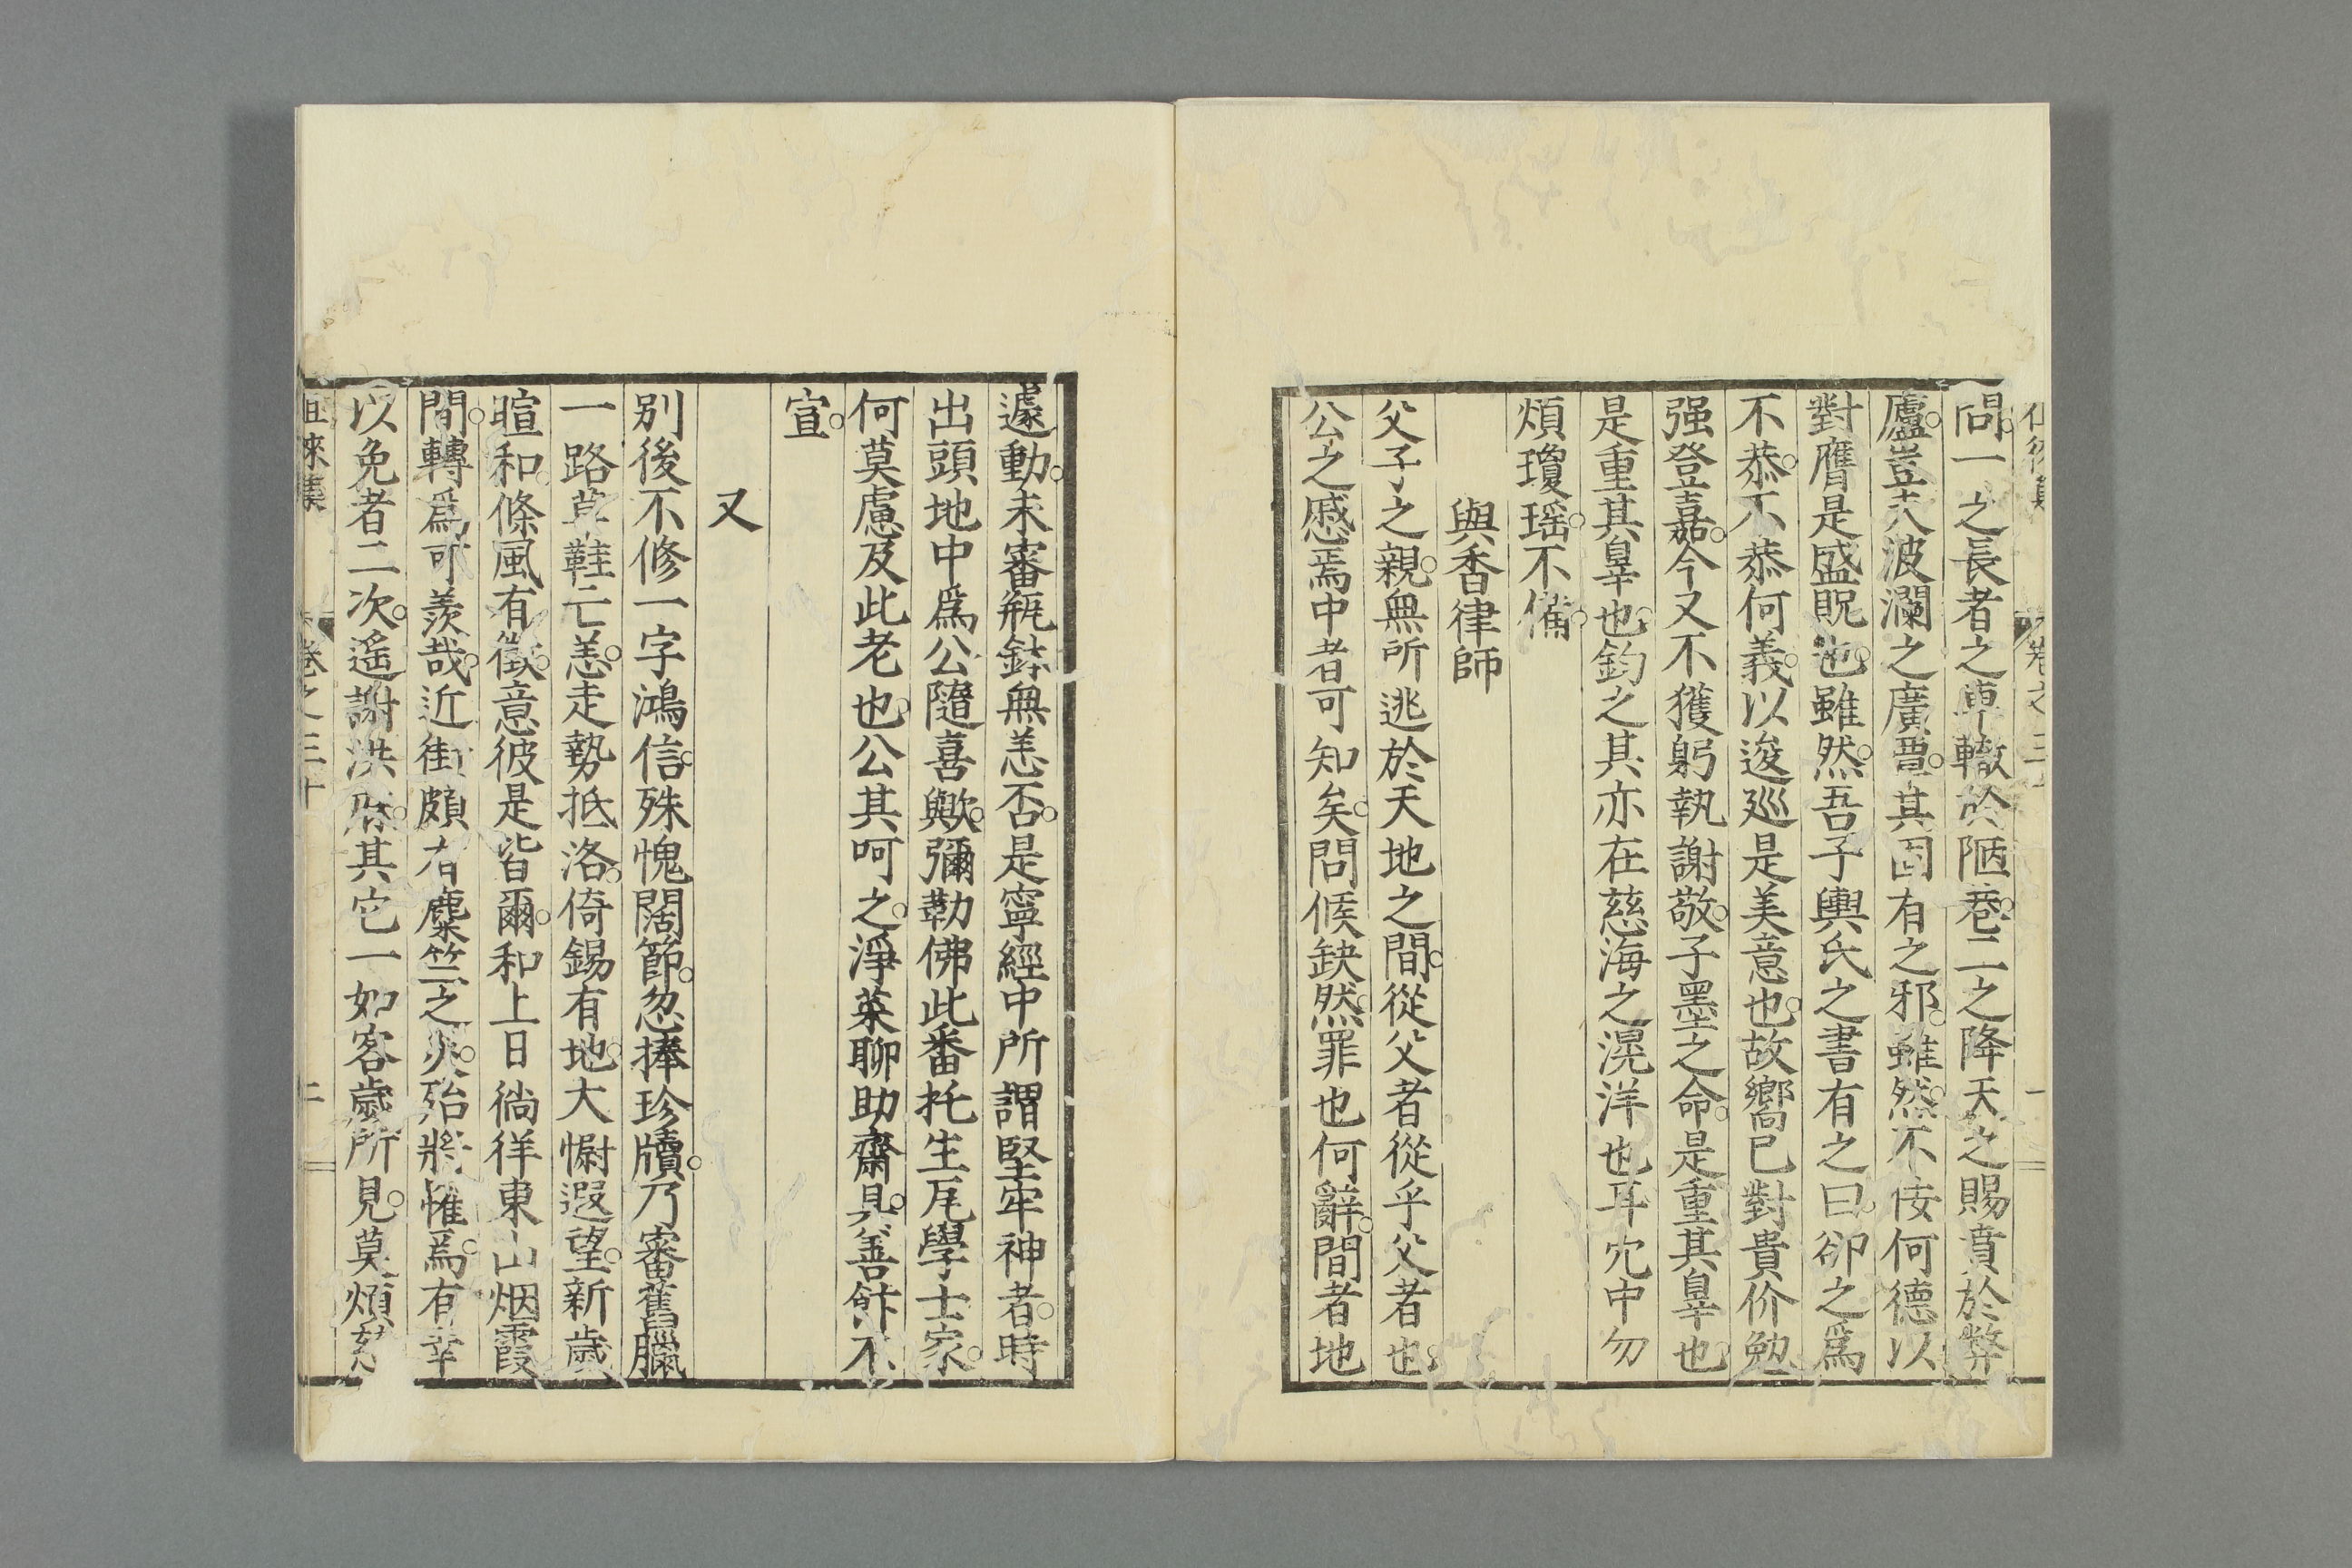 問一之長者之車轍於陋巷二之降天之賜賁於弊
廬豈夫波瀾之廣覃其固有之邪雖然不佞何德以
對膺是盛貺也雖然吾子輿氏之書有之曰卻之爲
不恭不恭何義以逡巡是美意也故嚮已對貴价勉
强登嘉今又不獲躬執謝敬子墨之命是重其辠也
是重其辠也鈞之其亦在慈海之滉洋也耳穴中勿
煩瓊瑶不備
與香律師
父子之親無所逃於天地之間從父者從乎父者也
公之慼焉中者可知矣問候缺然罪也何辭間者地
遽動未審瓶鉢無恙否是寧經中所謂堅牢神者時
出頭地中爲公隨喜歟彌勒佛此番托生厇學士家
何莫慮及此老也公其呵之淨菜聊助齋具善餰不
宣
又
別後不修一字鴻信殊愧闊節忽捧珍牘乃審舊臘
一路草鞋亡恙走勢抵洛倚錫有地大慰遐望新歲
暄和條風有徵意彼是皆爾和上日徜徉東山烟霞
間轉爲可羨哉近街頗有麋竺之火殆將罹焉有幸
以免者二次遙謝洪庥其它一如客歲所見莫煩慈
徂徠集 卷之三十 二